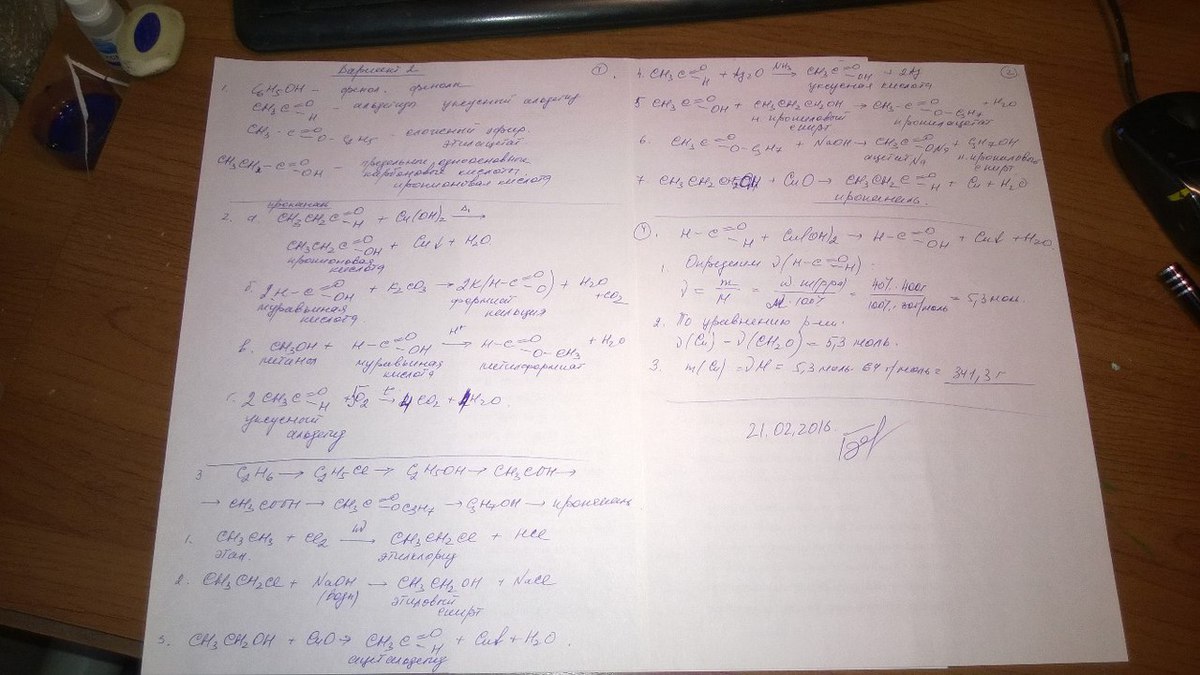 Вариант 2
①
1. C6H5OH – фенол. фенолы
CH3C=O H – альдегид уксусный альдегид
CH3-C=O O-C2H5 – сложный эфир.
этилацетат
CH3CH2-C=O OH – предельные одноосновные
карбоновые кислоты,
пропионовая кислота
пропаналь
2. а. CH3CH2C=O H + Cu(OH)2 →
CH3CH2C=O OH + Cu↓ + H2O
пропионовая
кислота
б. 2H-C=O OH + K2CO3 → 2K(H-C=O O) + H2O
+CO2
муравьиная формиат
кислота
в. CH3OH + H-C=O OH H+ → H-C=O O-CH3 + H2O
муравьиная метилформиат
кислота
г. 2CH3C=O H + 5O2 t° → 4CO2 + 4H2O
уксусный
альдегид
3 C2H6 → C2H5Cl → C2H5OH → CH3COH →
→ CH3COOH → CH3C=O OC3H7 → C3H7OH → пропаналь
1. CH3CH3 + Cl2 → CH3CH2Cl + HCl
этан. этилхлорид
2. CH3CH2Cl + NaOH → CH3CH2OH + NaCl
(водн) этиловый
спирт
3. CH3CH2OH + CuO → CH3C=O H + Cu↓ + H2O.
ацетальдегид
②
4. CH3C=O H + Ag2O NH3 → CH3C=O OH + 2Ag
уксусная кислота
5 CH3C=O OH + CH3CH2CH2OH → CH3-C=O O-C3H7 + H2O
н. пропиловый пропилацетат
спирт
6. CH3C=O O-C3H7 + NaOH → CH3C=O ONa + C3H7OH
ацетат Na н. пропиловый
спирт
7. CH3CH2CH2OH + CuO → CH3CH2C=O H + Cu + H2O
пропаналь.
④. H-C=O H + Cu(OH)2 → H-C=O OH + Cu↓ + H2O
1. Определим ν(H-C=O H)
ν = m/M = w·m(рра)/M·100% = 40%·400г/100%·30г/моль = 5,3 моль.
2. По уравнению р-ии.
ν(Cu) – ν(CH2O) = 5,3 моль.
3. m(Cu) = νM = 5,3 моль 64 г/моль = 341,3 г
21.02.2016.